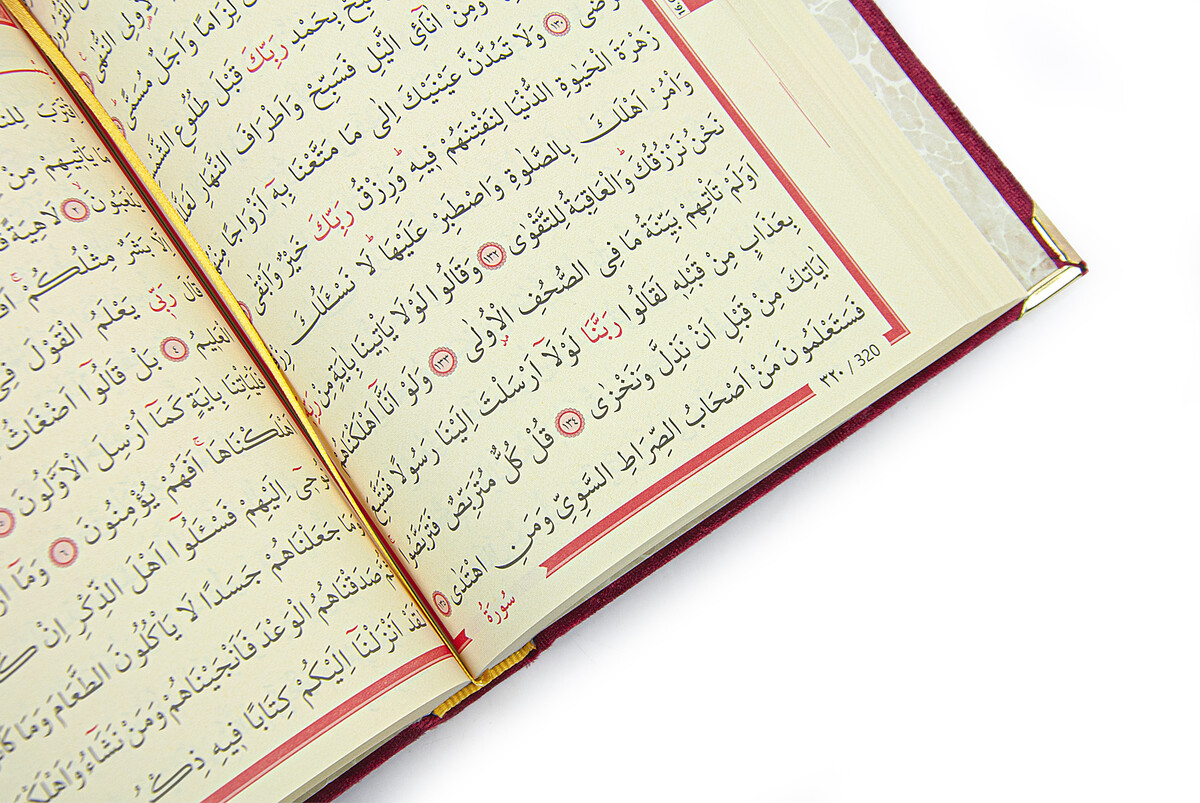 لِاُو۬لِى النُّهٰى
لِزَامًا وَاَجَلٌ مُسَمًّى
سَبِّحْ بِحَمْدِ رَبِّكَ قَبْلَ طُلُوعِ الشَّمْسِ
وَمِنْ اٰنَآئِ الَّيْلِ فَسَبِّحْ وَاَطْرَافَ النَّهَارِ لَعَلَّكَ
تَرْضٰى ﴿١٣٠﴾ وَلَا تَمُدَّنَّ عَيْنَيْكَ اِلٰى مَا مَتَّعْنَا بِه۪ٓ اَزْوَاجًا مِنْهُمْ
زَهْرَةَ الْحَيٰوةِ الدُّنْيَا لِنَفْتِنَهُمْ ف۪يهِ وَرِزْقُ رَبِّكَ خَيْرٌ وَاَبْقٰى
وَاْمُرْ اَهْلَكَ بِالصَّلٰوةِ وَاصْطَبِرْ عَلَيْهَا لَا نَسْـَٔلُكَ رِزْقًا
نَحْنُ نَرْزُقُكَ وَالْعَاقِبَةُ لِلتَّقْوٰى ﴿١٣٢﴾ وَقَالُوا لَوْلَا يَاْت۪ينَا بِاٰيَةٍ مِنْ رَبِّه۪
اَوَلَمْ تَاْتِهِمْ بَيِّنَةُ مَا فِى الصُّحُفِ الْاُو۫لٰى ﴿١٣٣﴾ وَلَوْ اَنَّٓا اَهْلَكْنَاهُمْ
بِعَذَابٍ مِنْ قَبْلِه۪ لَقَالُوا رَبَّنَا لَوْلَٓا اَرْسَلْتَ اِلَيْنَا رَسُولًا فَنَتَّبِعَ
اٰيَاتِكَ مِنْ قَبْلِ اَنْ نَذِلَّ وَنَخْزٰى ﴿١٣٤﴾ قُلْ كُلٌّ مُتَرَبِّصٌ فَتَرَبَّصُوا
فَسَتَعْلَمُونَ مَنْ اَصْحَابُ الصِّرَاطِ السَّوِىِّ وَمَنِ اهْتَدٰى ﴿١٣٥﴾
٣٢٠ / 320
سُورَةُ
اِقْتَرَبَ لِلنَّاسِ
مَا يَاْت۪يهِمْ مِنْ
يَلْعَبُونَ ﴿٢﴾ لَاهِيَةً
اِلَّا بَشَرٌ مِثْلُكُمْ
قَالَ رَبّ۪ى يَعْلَمُ الْقَوْلَ فِى
الْعَل۪يمُ ﴿٤﴾ بَلْ قَالُٓوا اَضْغَاثُ
فَلْيَاْتِنَا بِاٰيَةٍ كَمَٓا اُرْسِلَ الْاَوَّلُونَ ﴿٥﴾
اَهْلَكْنَاهَا اَفَهُمْ يُؤْمِنُونَ ﴿٦﴾ وَمَٓا
نُوح۪ٓى اِلَيْهِمْ فَسْـَٔلُٓوا اَهْلَ الذِّكْرِ اِنْ
وَمَا جَعَلْنَاهُمْ جَسَدًا لَا يَاْكُلُونَ الطَّعَامَ وَمَا
ثُمَّ صَدَقْنَاهُمُ الْوَعْدَ فَاَنْجَيْنَاهُمْ وَمَنْ نَشَٓاءُ وَاَهْلَكْنَا
لَقَدْ اَنْزَلْنَٓا اِلَيْكُمْ كِتَابًا ف۪يهِ ذِكْرُ